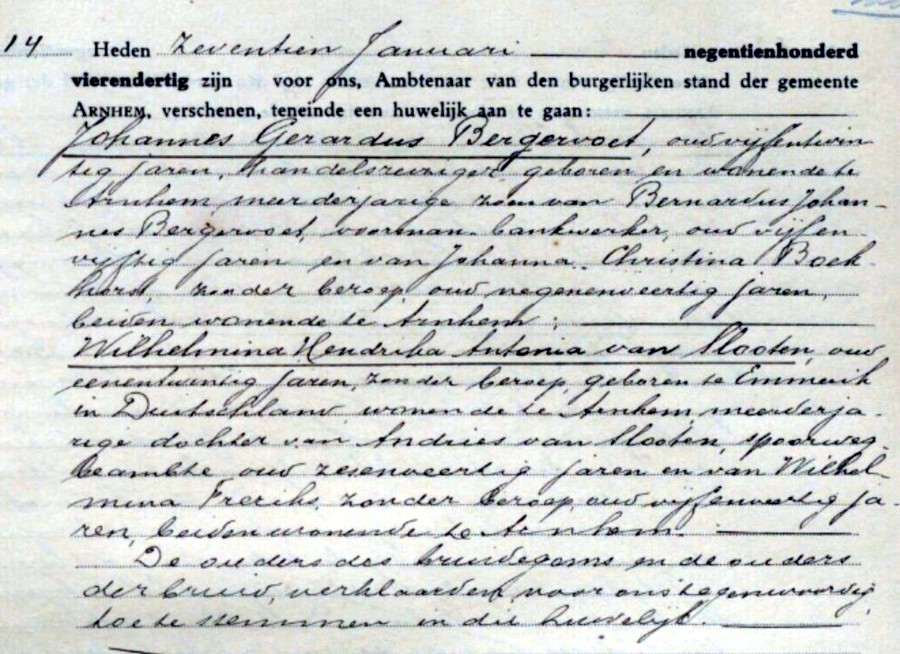 14 Heden zeventien Januari negentienhonderd
vierendertig zijn voor ons, Ambtenaar van den burgerlijken stand der gemeente
ARNHEM, verschenen, teneinde een huwelijk aan te gaan:
Johannes Gerardus Bergervoet, oud vijfentwin
tig jaren, handelsreiziger, geboren en wonende te
Arnhem, meerderjarige zoon van Bernardus Johan-
nes Bergervoet, voorman-bankwerker, oud vijfen-
vijftig jaren en van Johanna Christina Boek-
horst, zonder beroep, oud negenenveertig jaren,
beiden wonende te Arnhem;
Wilhelmina Hendrika Antonia van Slooten, oud
eenentwintig jaren, zonder beroep, geboren te Emmerik
in Duitschland wonende te Arnhem, meerderja-
rige dochter van Andries van Slooten, spoorweg-
beambte oud zesenveertig jaren en van Wilhel
mina Freriks, zonder beroep, oud vijfenveertig ja-
ren, beiden wonende te Arnhem.
De ouders des bruidegoms en de ouders
der bruid, verklaarden voor ons tegenwoordig
toe te stemmen in dit huwelijk.